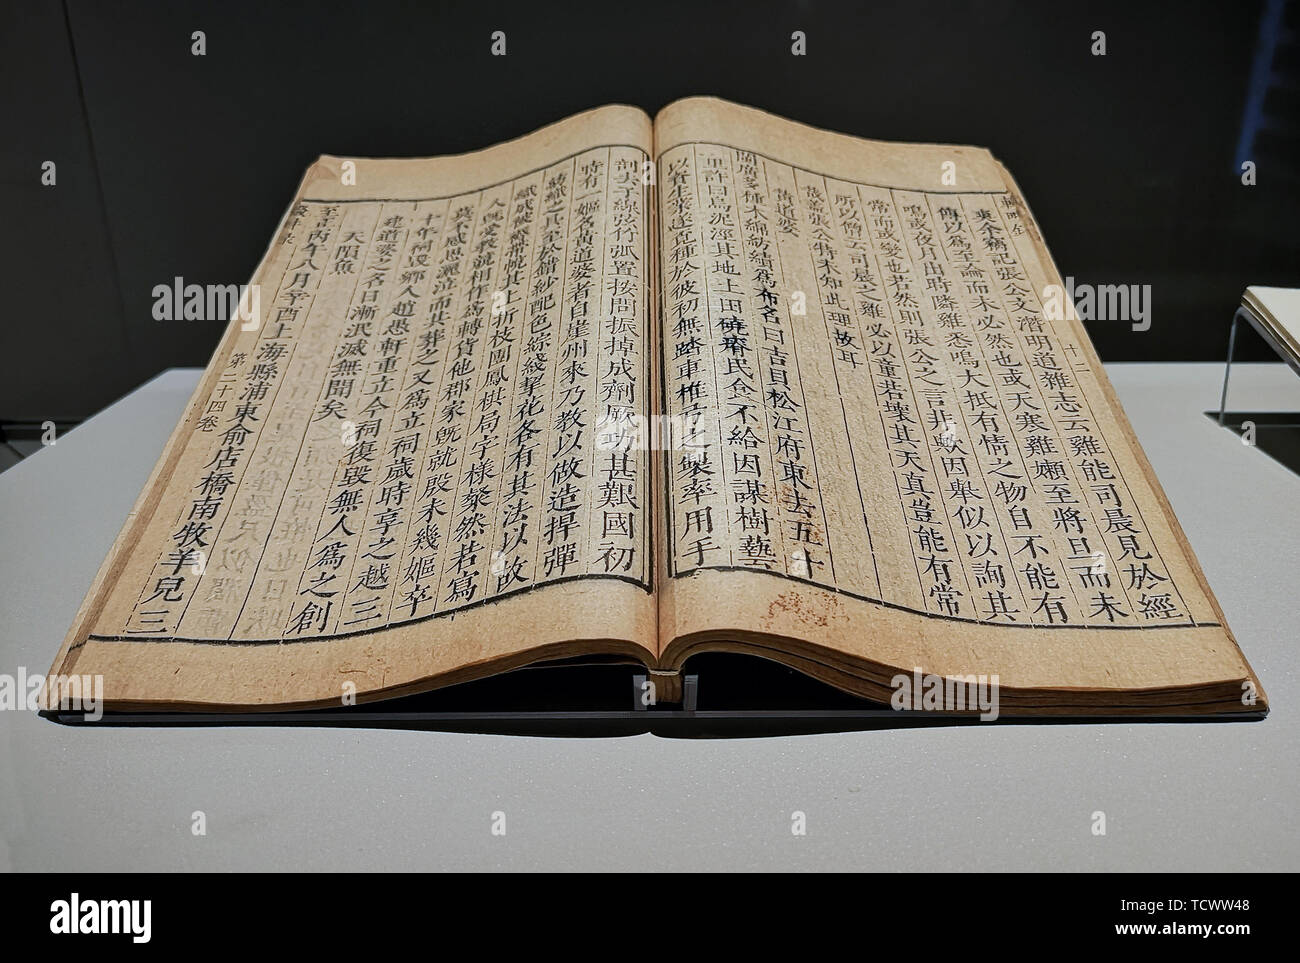 十二
爽余竊記張公文潛明道雜志云雞能司晨見於經
傳以爲至論而未必然也或天寒雞嬾至將旦而未
鳴或夜月出時隣雞悉鳴大抵有情之物自不能有
常而或變也若然則張公之言非歟因舉似以詢其
所以僧云司是之雞必以童若壞其天真豈能有常
蓋張公特未知此理故耳
黃道婆
閩廣多種木綿紡績爲布名曰吉貝松江府東去五十
里許曰烏泥涇其地土田磽瘠民食不給因謀樹藝
以資生業遂覓種於彼初無踏車椎弓之製率用手
剖去子線弦竹弧置按間振掉成劑厥功甚艱國初
時有一嫗名黃道婆者自崖州來乃教以做造捍彈
紡織之具至於錯紗配色綜綫挈花各有其法以故
織成被褥帶帨其上折枝團鳳棋局字樣粲然若寫
人既受教競相作爲轉貨他郡家既就殷未幾嫗卒
莫不感恩灑泣而共葬之又爲立祠歲時享之越三
十年祠毀鄉人趙愚軒重立今祠復毀無人爲之創
建道婆之名日漸泯滅無聞矣
天隕魚
至正丙午八月辛酉上海縣浦東俞店橋南牧羊兒三
第二十四卷
alamy
Image ID: TCWW48
www.alamy.com